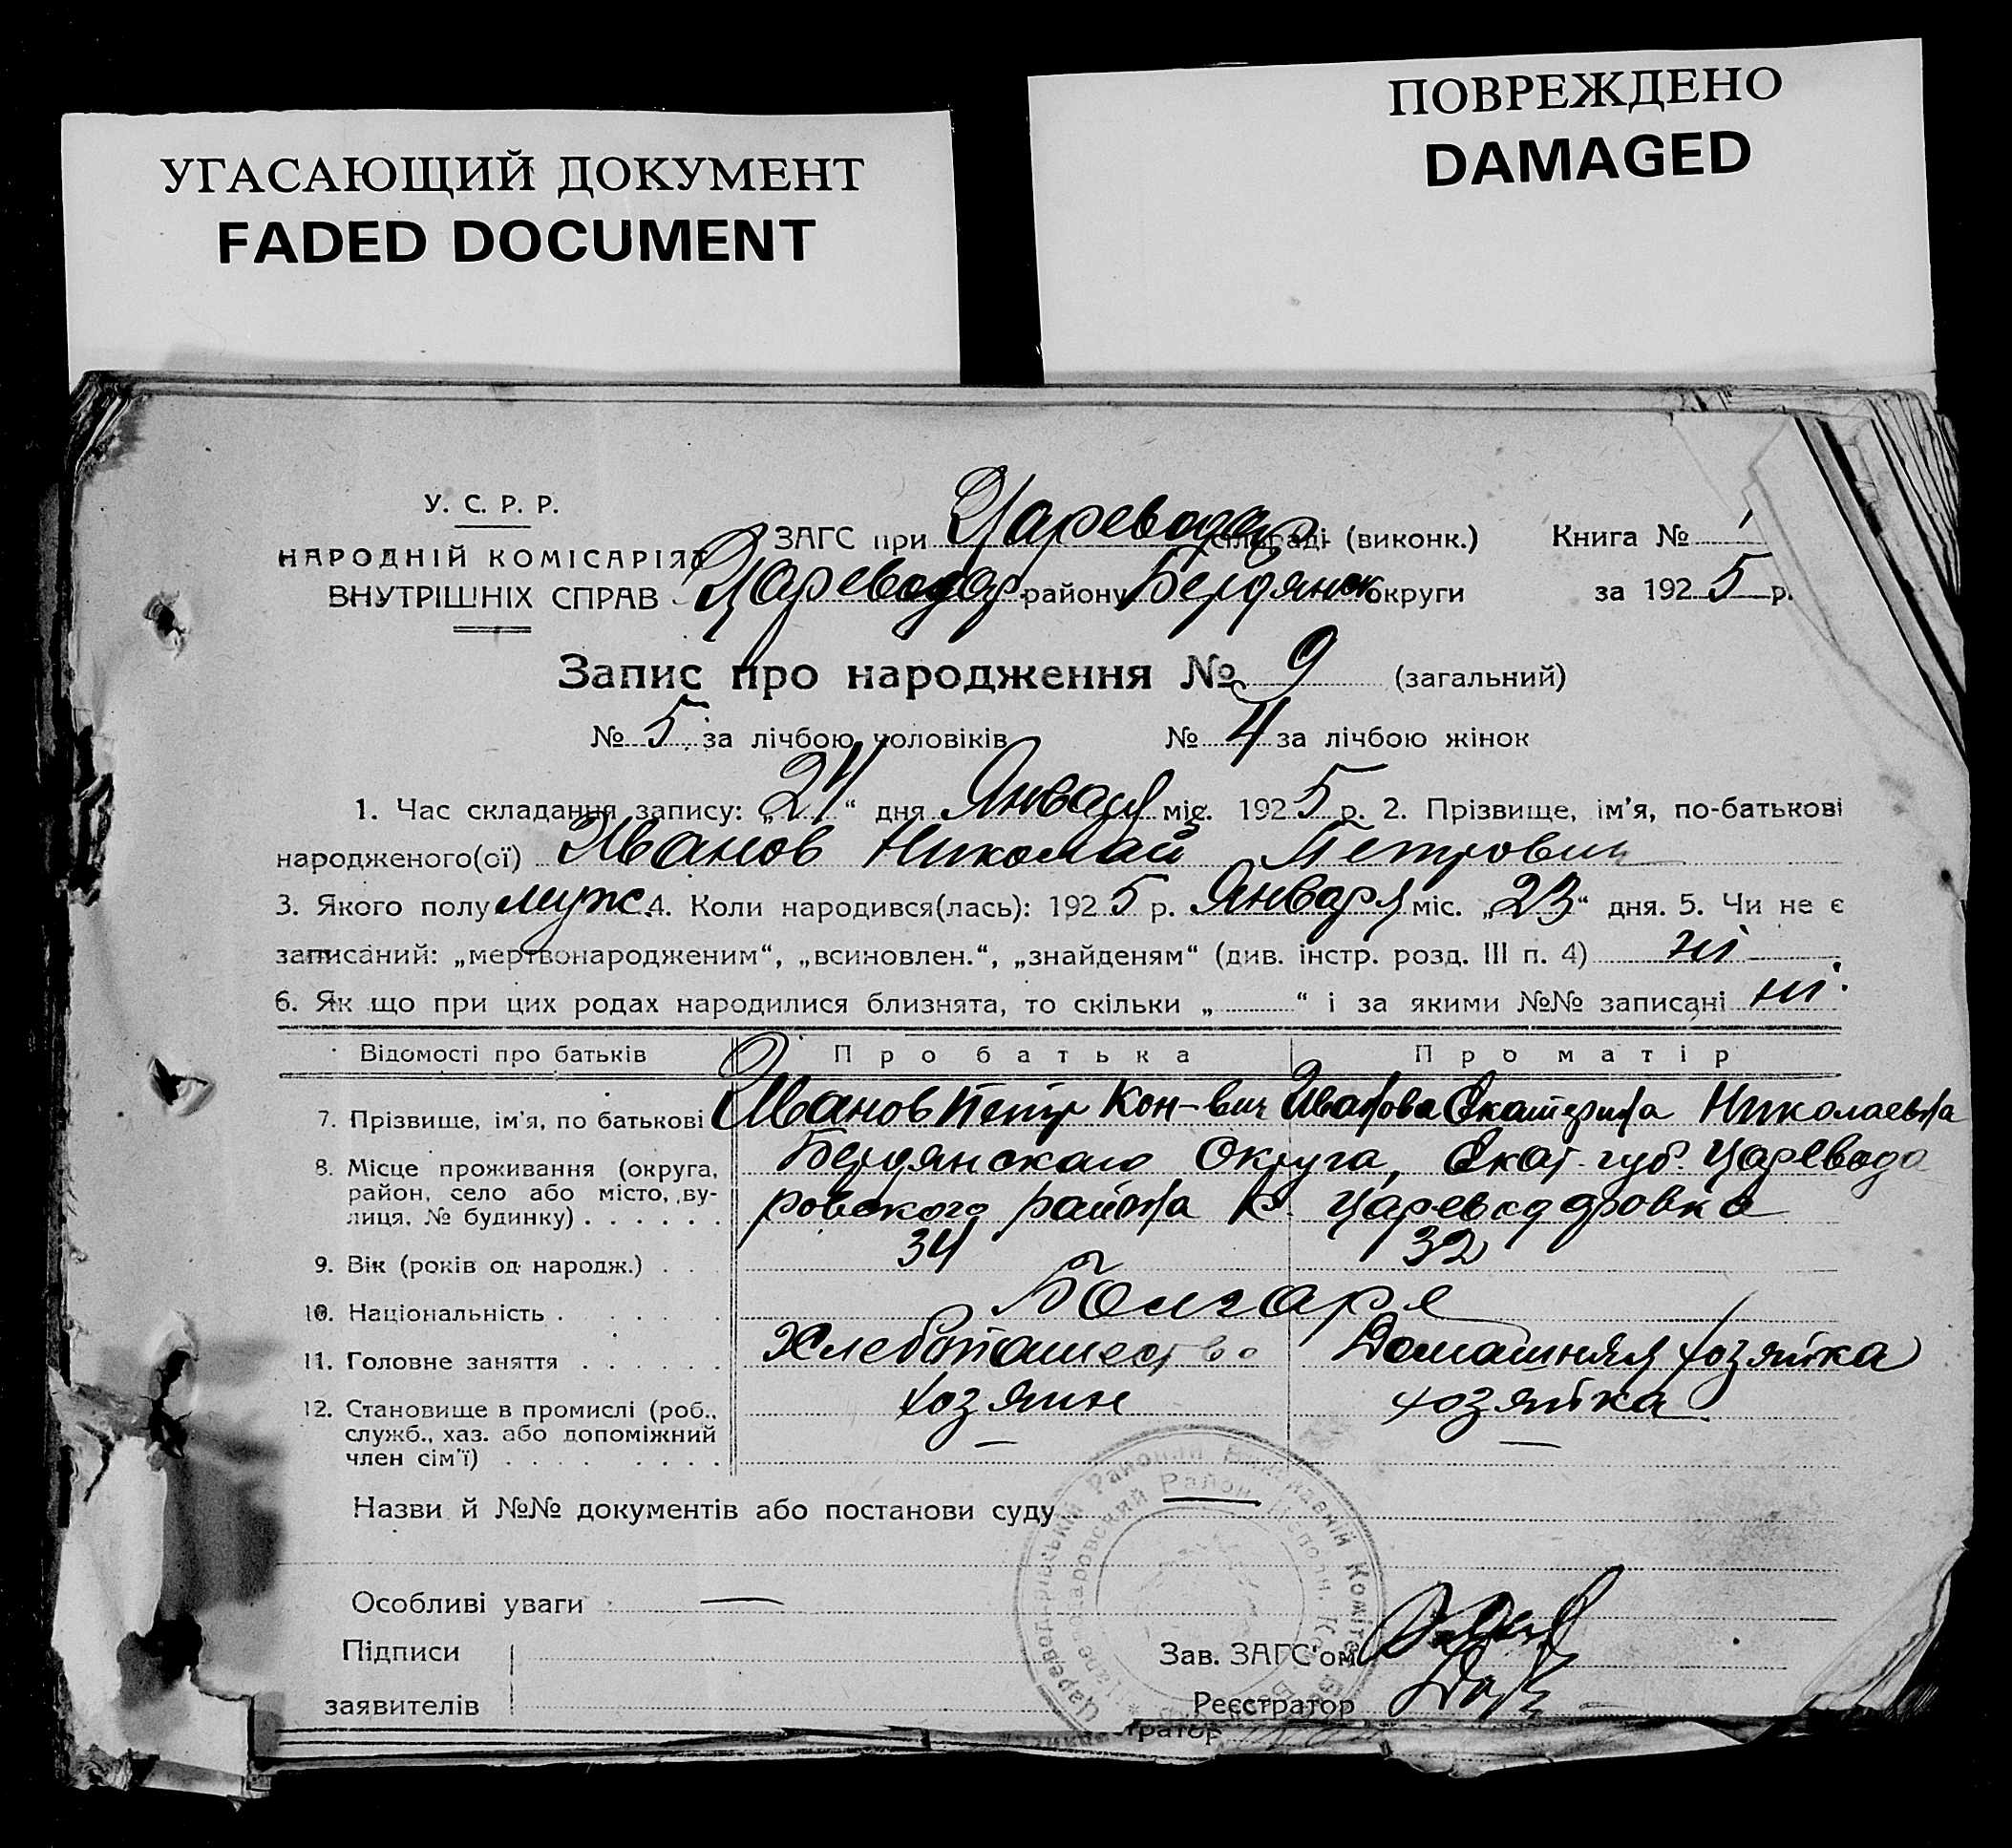 УГАСАЮЩИЙ ДОКУМЕНТ
FADED DOCUMENT
ПОВРЕЖДЕНО
DAMAGED
У. С. Р. Р.
НАРОДНІЙ КОМІСАРІЯТ
ВНУТРІШНІХ СПРАВ
ЗАГС при Царевода сільраді (виконк.) Книга № 1
Цареводар. району Бердянск округи за 1925 р.
Запис про народження № 9 (загальний)
№ 5 за лічбою чоловіків № 4 за лічбою жінок
1. Час складання запису: „24“ дня Января міс. 1925 р. 2. Прізвище, ім'я, по-батькові
народженого(ої) Иванов Николай Петрович
3. Якого полу муж. 4. Коли народився(лась): 1925 р. Января міс. „23“ дня. 5. Чи не є
записаний: „мертвонародженим“, „всиновлен.“, „знайденям“ (див. інстр. розд. III п. 4) ні
6. Як що при цих родах народилися близнята, то скільки „ “ і за якими №№ записані ні.
Відомості про батьків Про батька Про матір
7. Прізвище, ім'я, по батькові Иванов Петр Кон-вич Иванова Екатерина Николаевна
8. Місце проживання (округа, Бердянскаго Округа, Екат. губ. Царевода
район, село або місто, ву- ровского района с. Цареводаровка
лиця, № будинку)
9. Вік (років од народж.) 34 32
10. Національність Болгаре
11. Головне заняття Хлебопашество Домашняя хозяйка
12. Становище в промислі (роб., хозяин хозяйка
служб., хаз. або допоміжний
член сім'ї)
Назви й №№ документів або постанови суду
Особливі уваги
Підписи Зав. ЗАГС'ом
заявителів Реєстратор
тратор